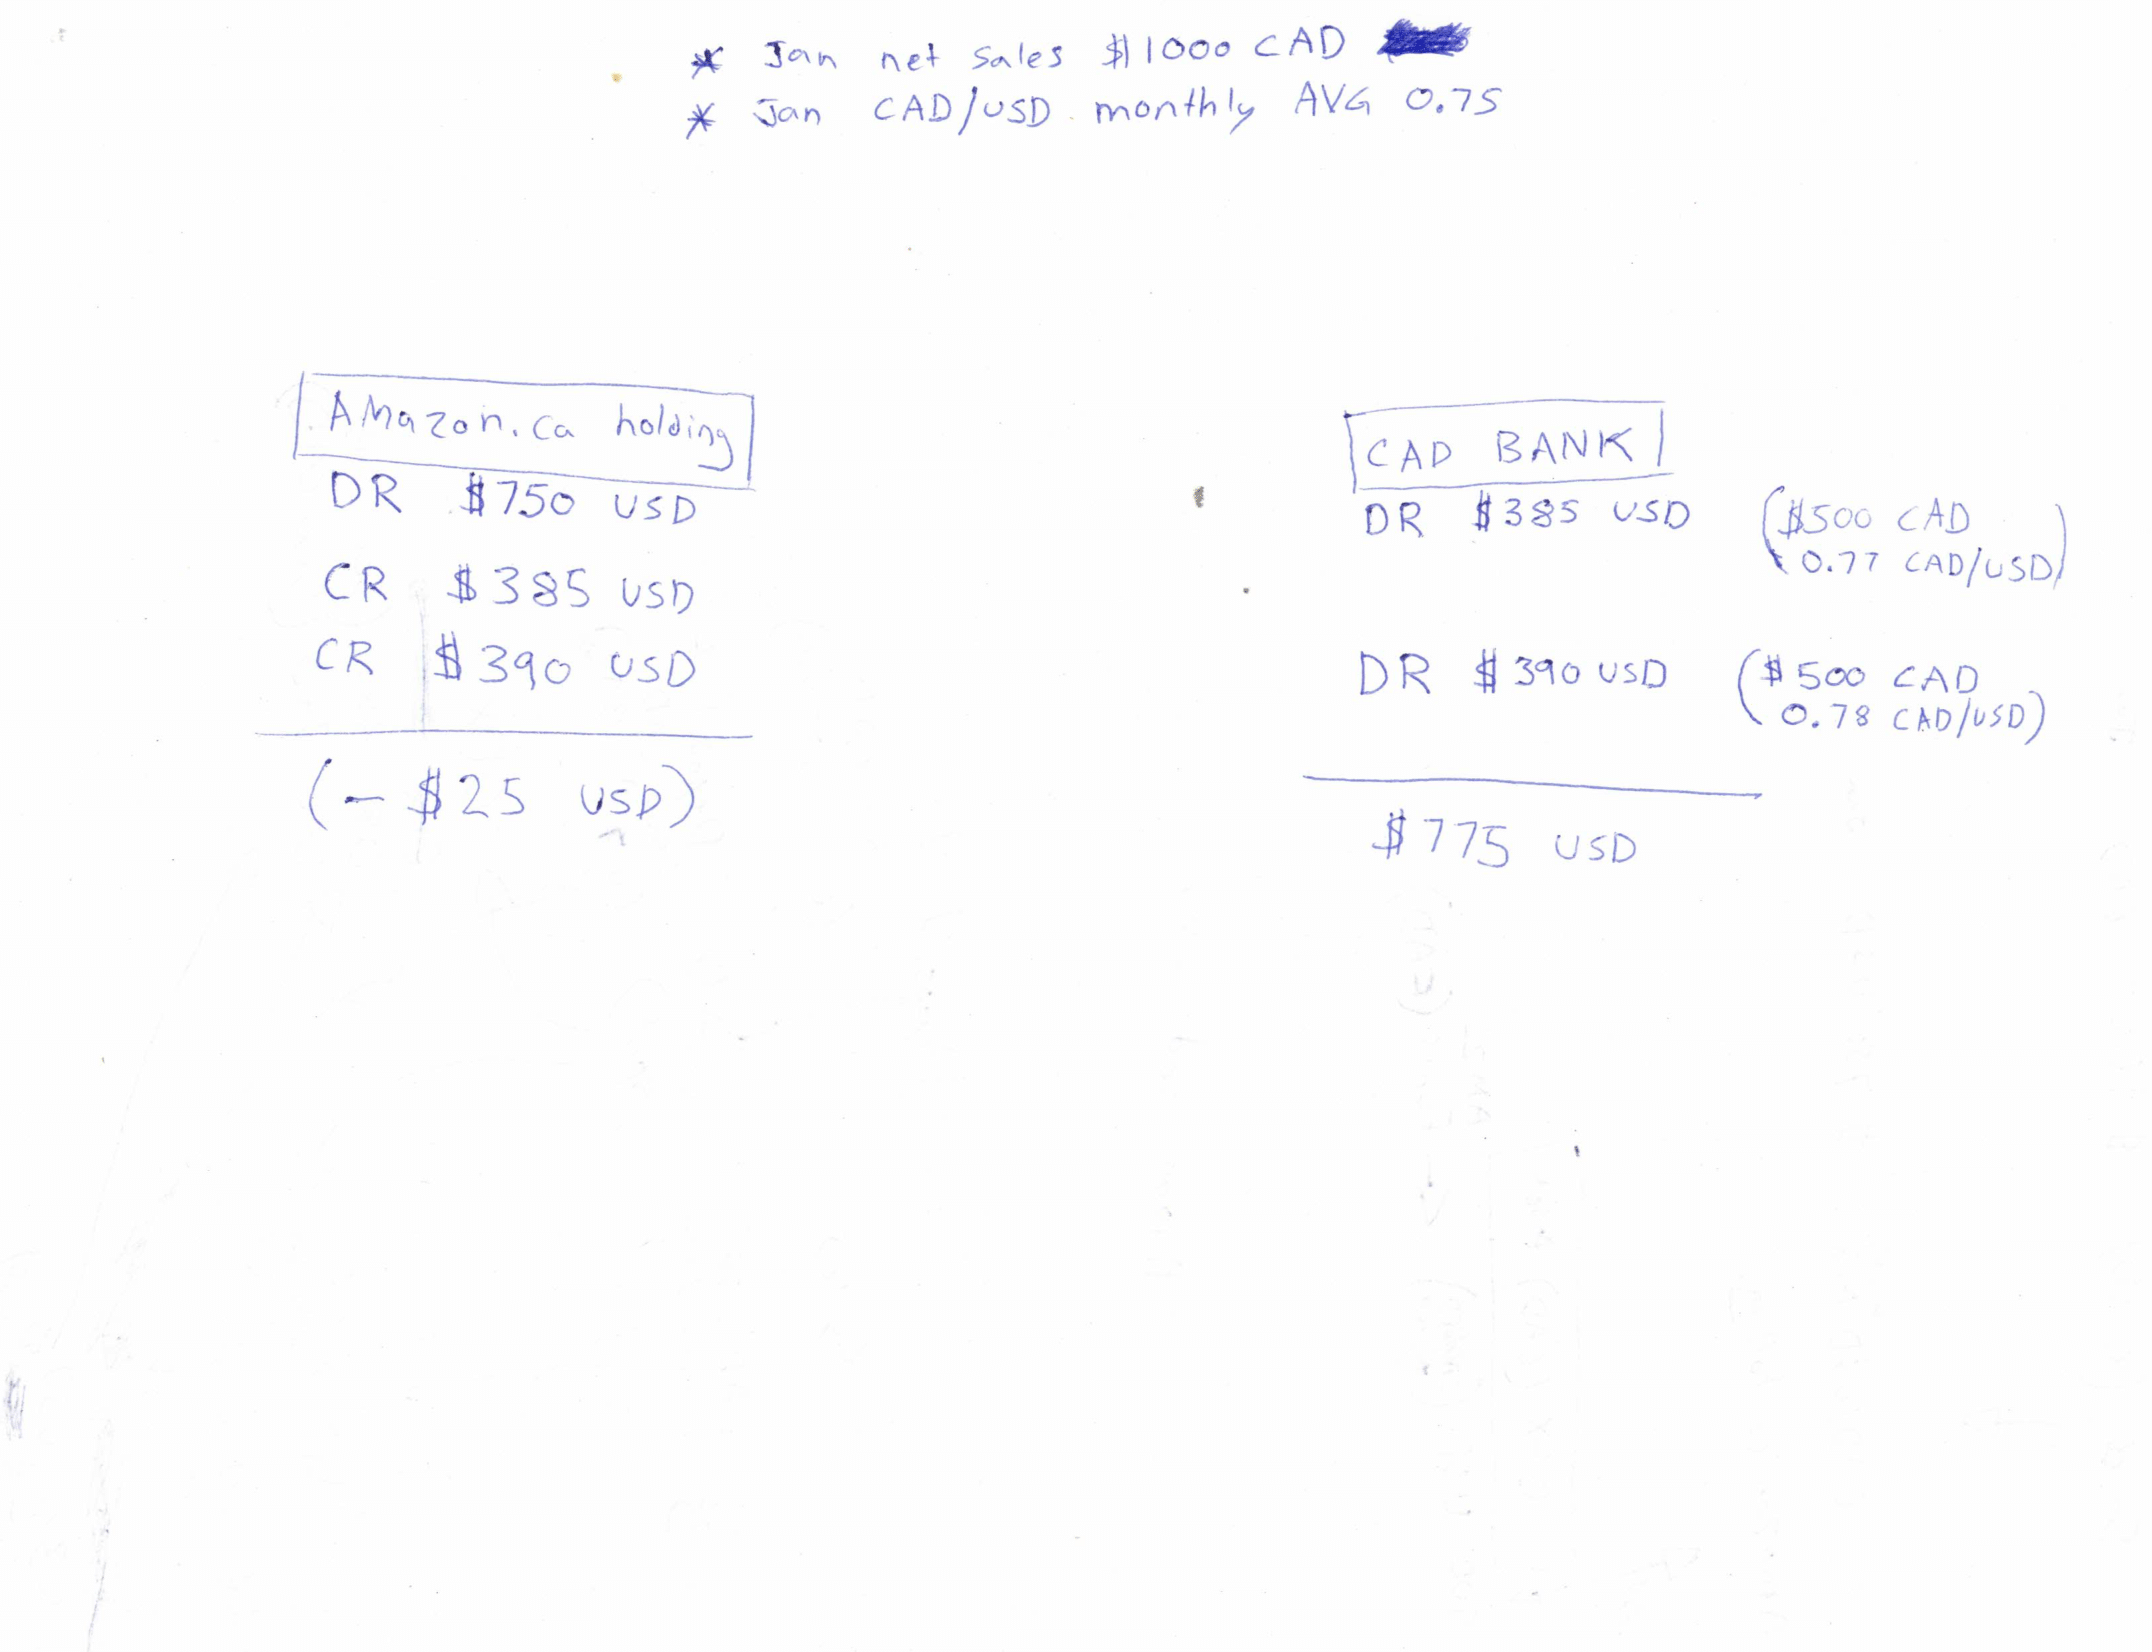 * Jan net sales $1000 CAD
* Jan CAD/USD monthly AVG 0.75
Amazon.ca holding
DR $750 USD
CR $385 USD
CR $390 USD
(- $25 USD)
CAD BANK
DR $385 USD ($500 CAD
0.77 CAD/USD)
DR $390 USD ($500 CAD
0.78 CAD/USD)
$775 USD